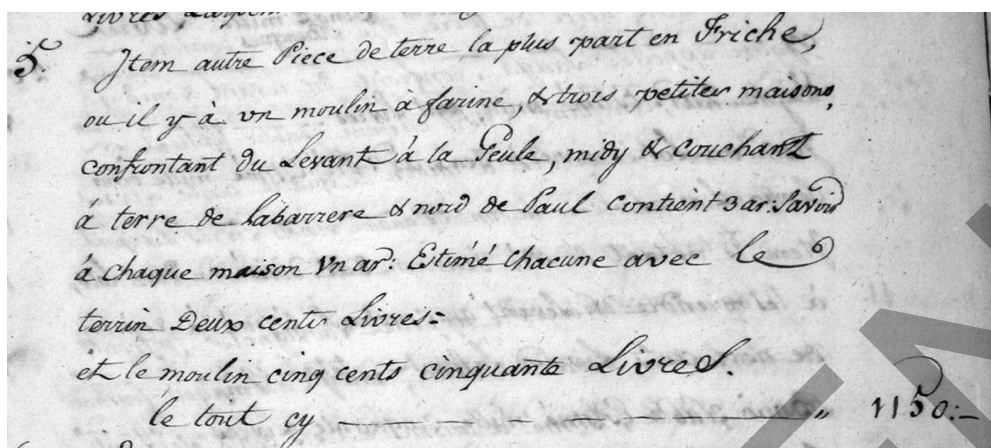 Livres
5. Item autre Piece de terre la plus part en Friche,
ou il y à vn moulin à farine, & trois petites maisons,
confrontant du Levant à la Geule, midy & couchant
à terre de Labarrere & nord de Paul contient 3 ar: Savoir
à chaque maison Vn ar: Estimé chacune avec le
terrin Deux cents Livres=
et le moulin cinq cents cinquante LivreS.
le tout cy — — — — — — — — „ 1150:—